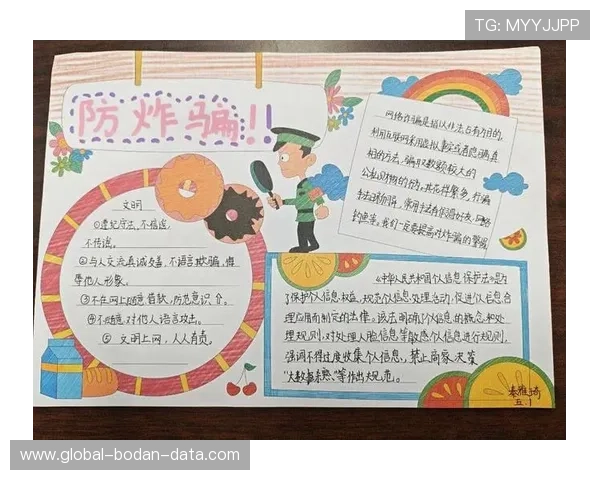 TG: MYYJJPP
防炸骗!!
文明
①遵纪守法,不信谣,
不传谣。
②与人交流真诚友善,不语言欺骗,
等他人形象。
③不在网上随意
④不随意对他人语言攻击。
⑤ 文明上网,人人有责。
网络诈骗是指以非法占有为目的,
利用互联网采用虚拟事实或者隐瞒真
相的方法,骗取数额较大的
公私财物的行为。其花样繁多,行骗
手法
我们一定要提高对炸骗的警惕
《中华人民共和国个人信息保护法》是为
了保护个人信息权益,规范个人信息处理活动,促进个人信息合
理应用而制定的法律。该法明确了个人信息的概念和处
理规则,对处理人脸信息等敏感个人信息进行规则,
强调不得过度收集个人信息,禁止商家
"大数据杀熟"等作出规范。
五.1
www.global-bodan-data.com